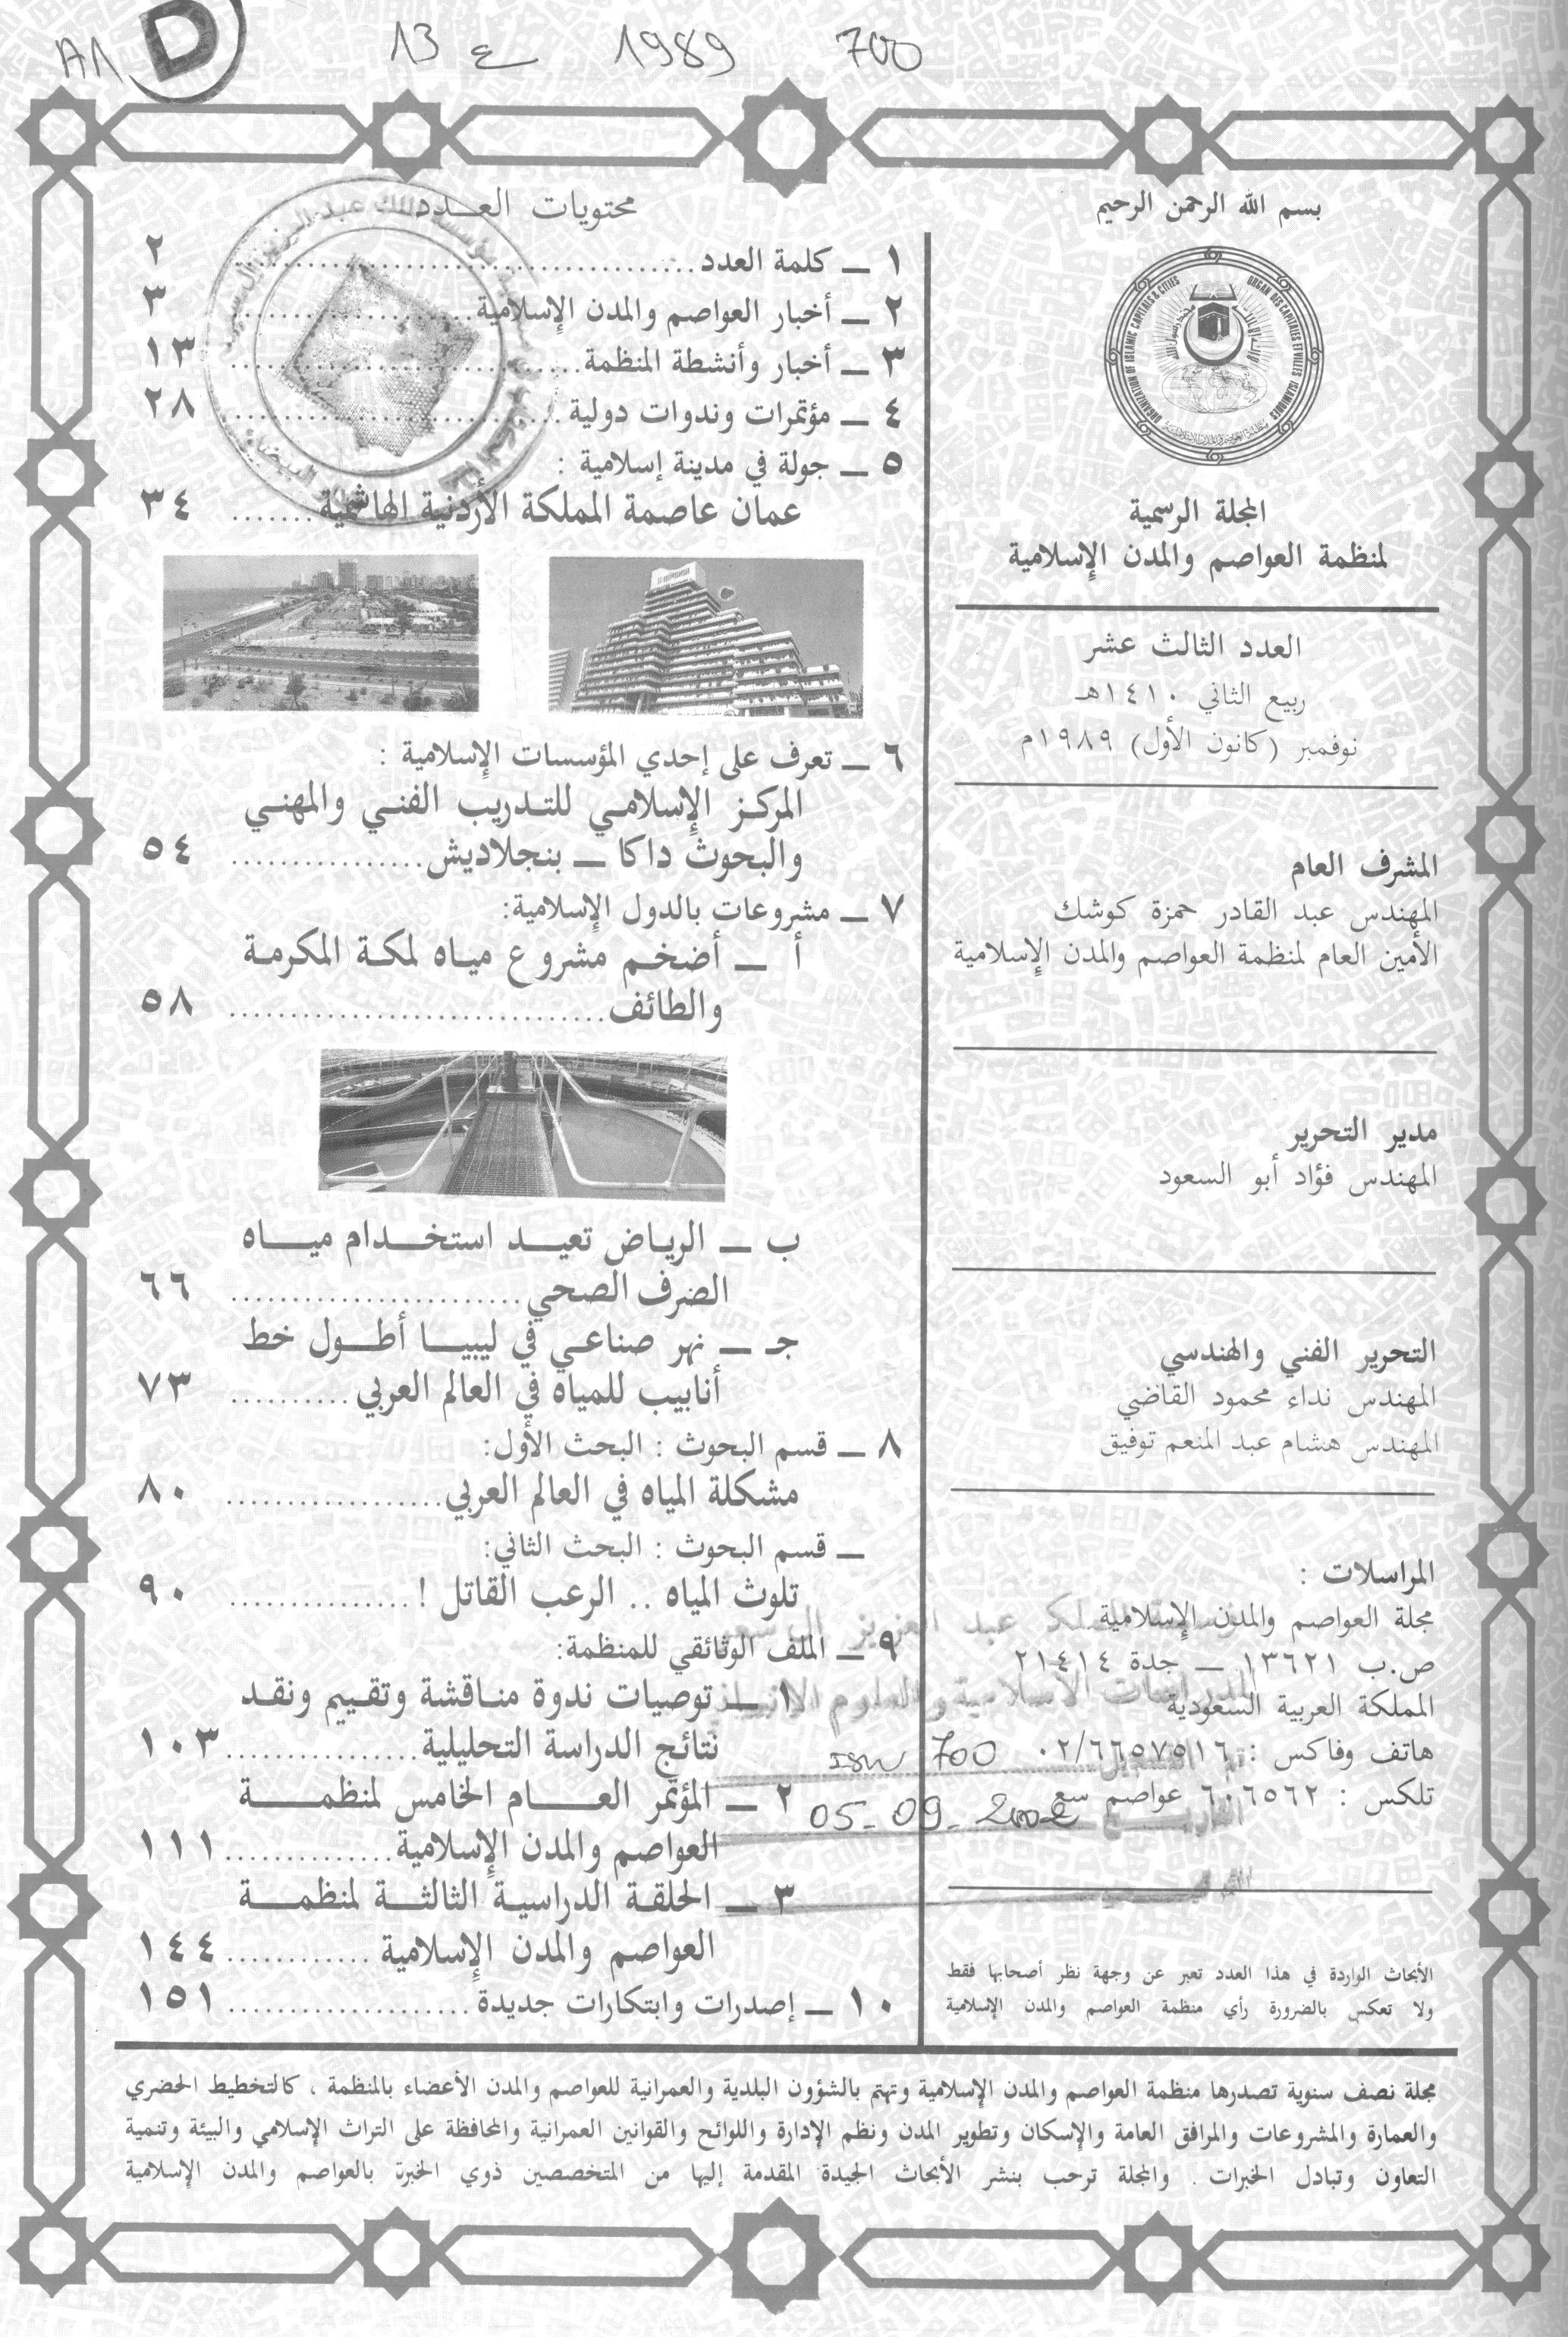 A1 D 13 ع 1989 700
بسم الله الرحمن الرحيم
ORGANIZATION OF ISLAMIC CAPITALS & CITIES
ORGAN. DES CAPITALES ET VILLES ISLAMIQUES
المجلة الرسمية
لمنظمة العواصم والمدن الإسلامية
العدد الثالث عشر
ربيع الثاني ١٤١٠هـ
نوفمبر (كانون الأول) ١٩٨٩م
المشرف العام
المهندس عبد القادر حمزة كوشك
الأمين العام لمنظمة العواصم والمدن الإسلامية
مدير التحرير
المهندس فؤاد أبو السعود
التحرير الفني والهندسي
المهندس نداء محمود القاضي
المهندس هشام عبد المنعم توفيق
المراسلات :
مجلة العواصم والمدن الإسلامية
ص.ب ١٣٦٢١ ــ جدة ٢١٤١٤
المملكة العربية السعودية
هاتف وفاكس : ٠٢/٦٦٥٧٥١٦
تلكس : ٦٠٦٥٦٢ عواصم سع
700
05-09-2002
الأبحاث الواردة في هذا العدد تعبر عن وجهة نظر أصحابها فقط
ولا تعكس بالضرورة رأي منظمة العواصم والمدن الإسلامية
محتويات العــدد
١ ــ كلمة العدد ........ ٢
٢ ــ أخبار العواصم والمدن الإسلامية ........ ٣
٣ ــ أخبار وأنشطة المنظمة ........ ١٣
٤ ــ مؤتمرات وندوات دولية ........ ٢٨
٥ ــ جولة في مدينة إسلامية :
عمان عاصمة المملكة الأردنية الهاشمية ....... ٣٤
٦ ــ تعرف على إحدي المؤسسات الإسلامية :
المركز الإسلامي للتدريب الفني والمهني
والبحوث داكا ــ بنجلاديش ........ ٥٤
٧ ــ مشروعات بالدول الإسلامية:
أ ــ أضخم مشروع مياه لمكة المكرمة
والطائف ........ ٥٨
ب ــ الرياض تعيد استخدام مياه
الصرف الصحي ........ ٦٦
جـ ــ نهر صناعي في ليبيا أطول خط
أنابيب للمياه في العالم العربي ........ ٧٣
٨ ــ قسم البحوث : البحث الأول:
مشكلة المياه في العالم العربي ........ ٨٠
ــ قسم البحوث : البحث الثاني:
تلوث المياه .. الرعب القاتل ! ........ ٩٠
٩ ــ الملف الوثائقي للمنظمة:
١ ــ توصيات ندوة مناقشة وتقييم ونقد
نتائج الدراسة التحليلية ........ ١٠٣
٢ ــ المؤتمر العام الخامس لمنظمة
العواصم والمدن الإسلامية ........ ١١١
٣ ــ الحلقة الدراسية الثالثة لمنظمة
العواصم والمدن الإسلامية ........ ١٤٤
١٠ ــ إصدرات وابتكارات جديدة ........ ١٥١
مجلة نصف سنوية تصدرها منظمة العواصم والمدن الإسلامية وتهتم بالشؤون البلدية والعمرانية للعواصم والمدن الأعضاء بالمنظمة ، كالتخطيط الحضري
والعمارة والمشروعات والمرافق العامة والإسكان وتطوير المدن ونظم الإدارة واللوائح والقوانين العمرانية والمحافظة على التراث الإسلامي والبيئة وتنمية
التعاون وتبادل الخبرات . والمجلة ترحب بنشر الأبحاث الجيدة المقدمة إليها من المتخصصين ذوي الخبرة بالعواصم والمدن الإسلامية